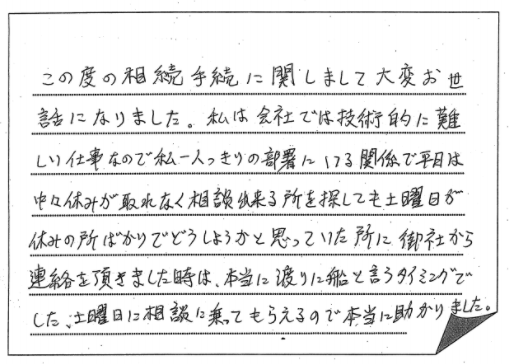 この度の相続手続に関しまして大変お世
話になりました。私は会社では技術的に難
しい仕事なので私一人っきりの部署にいる関係で平日は
中々休みが取れなく相談出来る所を探しても土曜日が
休みの所ばかりでどうしようかと思っていた所に御社から
連絡を頂きました時は、本当に渡りに船と言うタイミングで
した、土曜日に相談に乗ってもらえるので本当に助かりました。